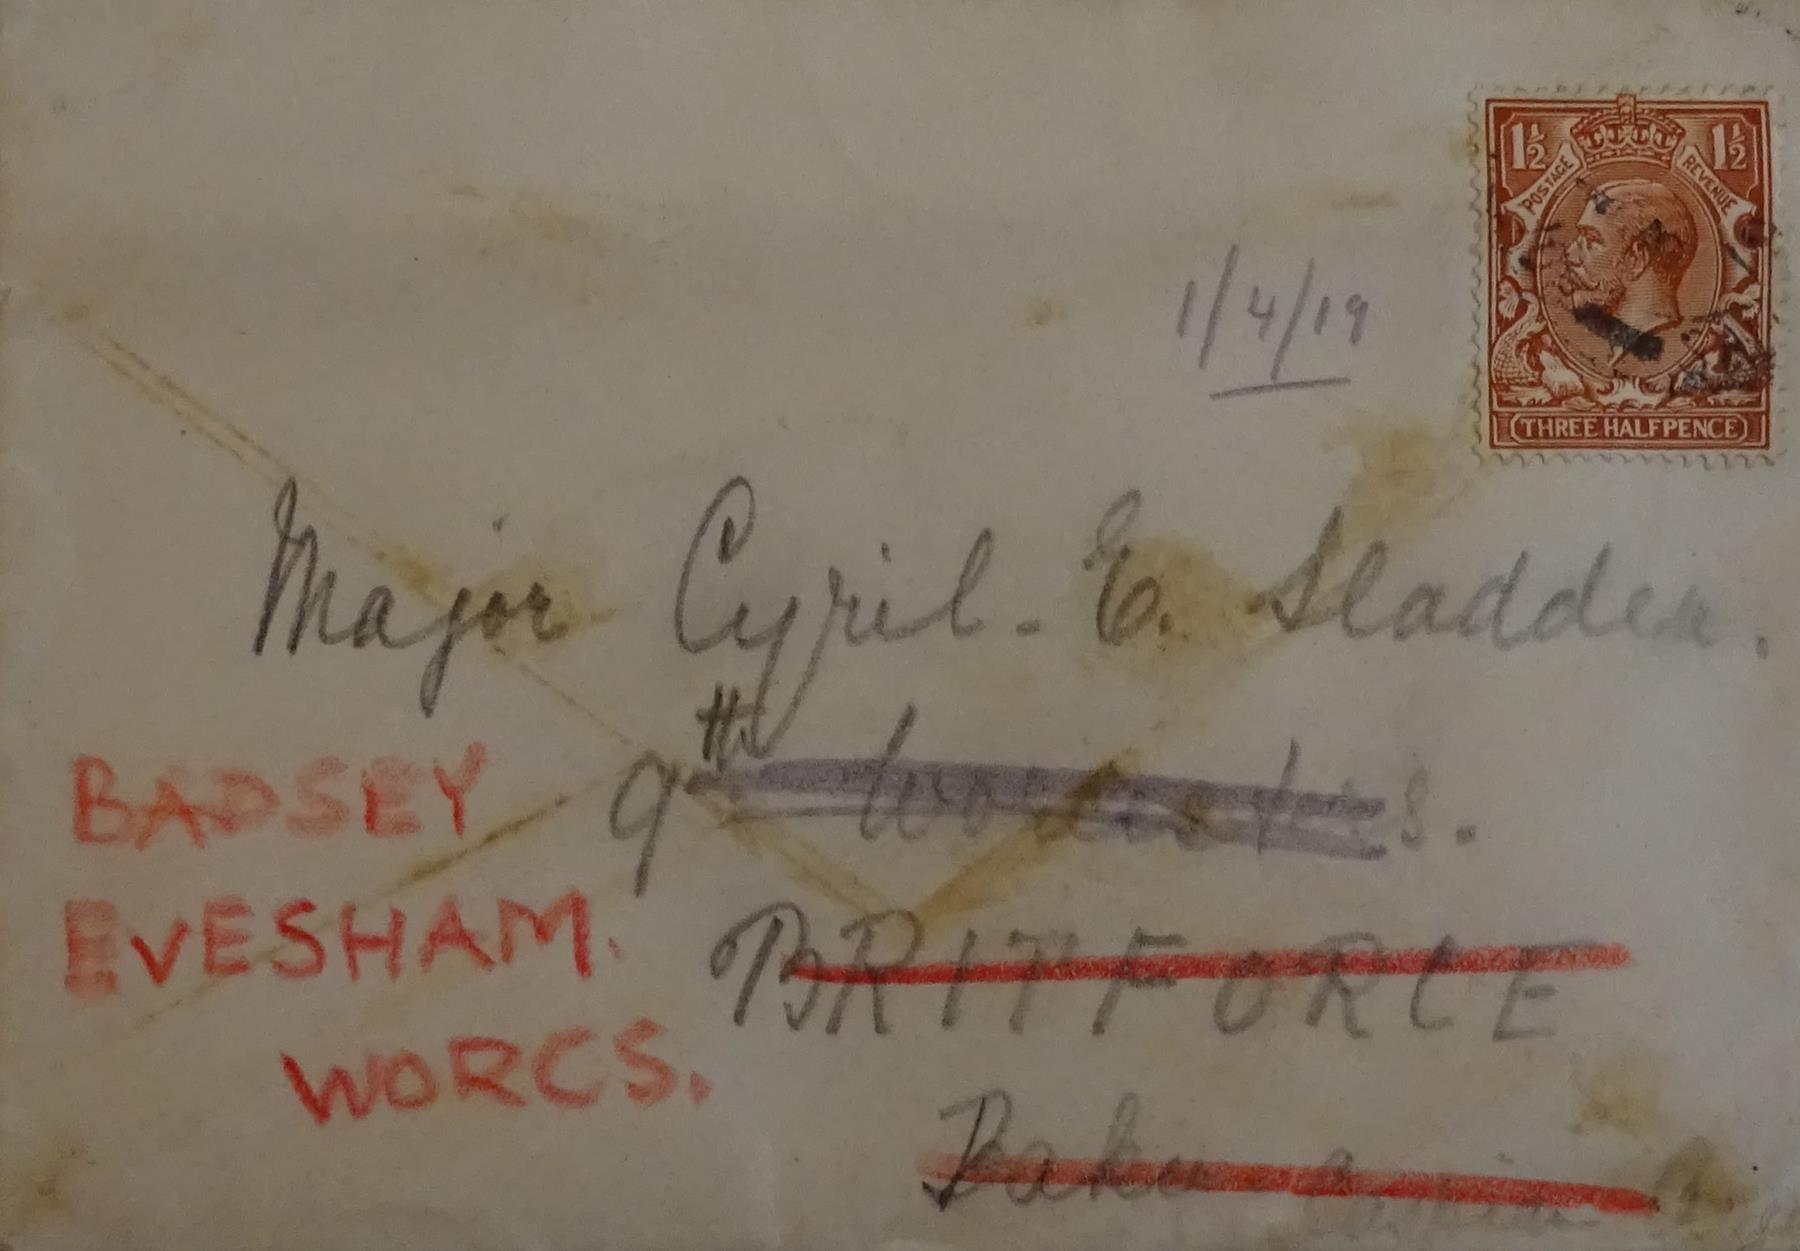 1½ 1½
POSTAGE REVENUE
THREE HALFPENCE
1/4/19
Major Cyril. E. Sladden.
9th Worcesters.
BRITFORCE
Baku
BADSEY
EVESHAM.
WORCS.